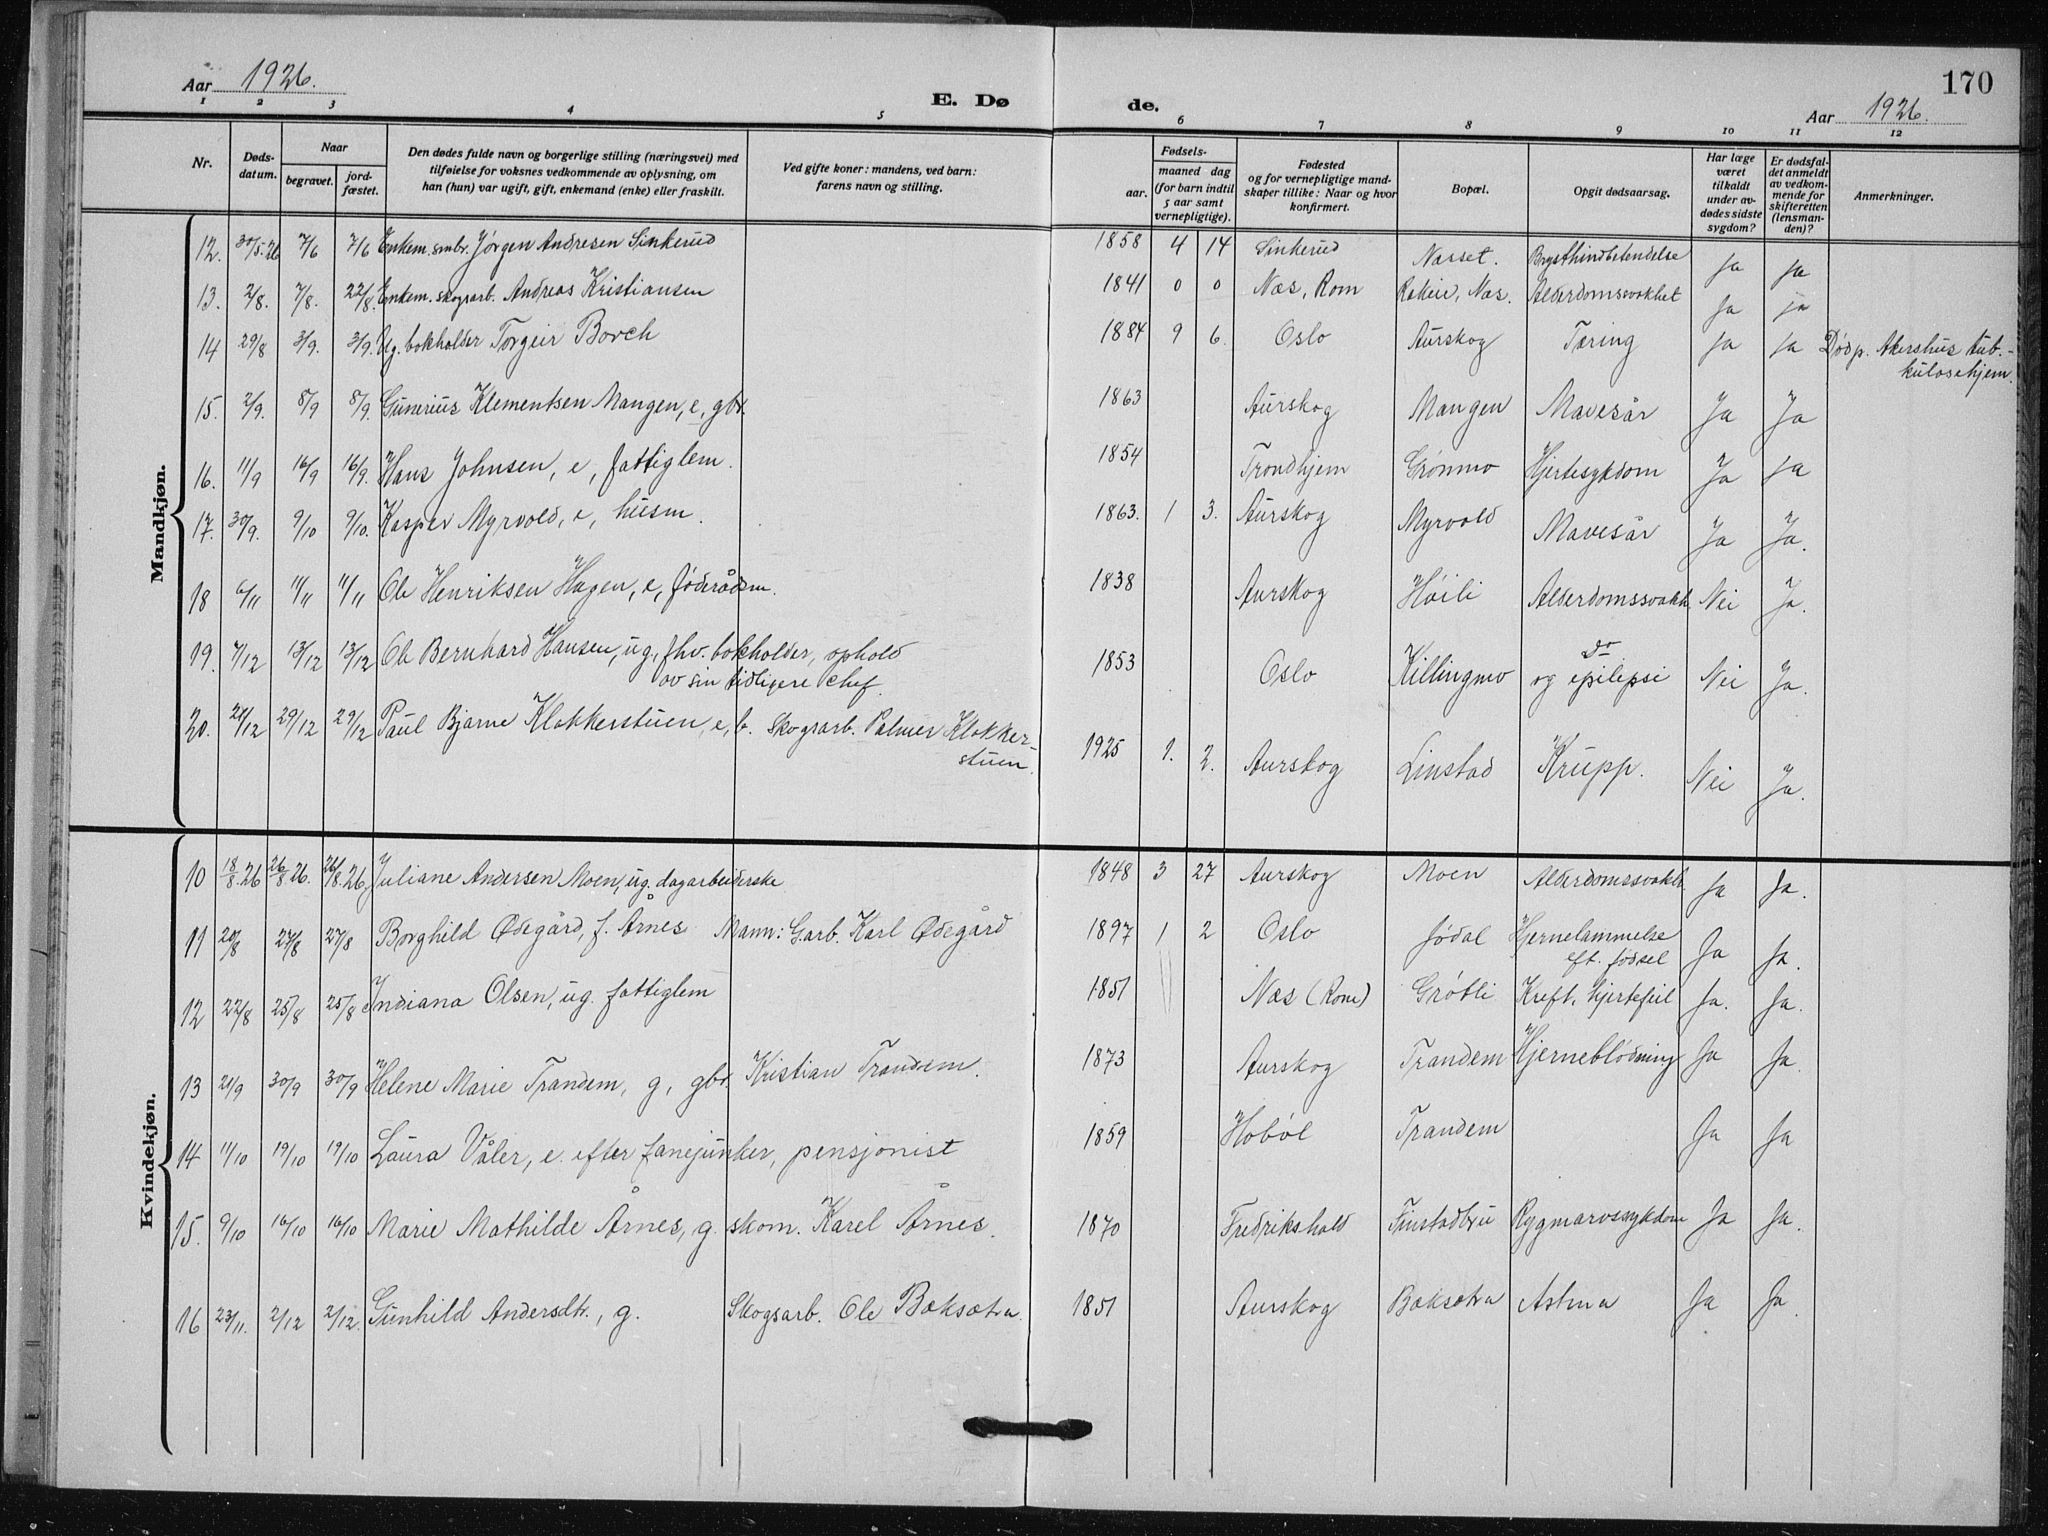 170
Aar 1926. E. Døde. Aar 1926.
1 2 3 4 5 6 7 8 9 10 11 12
Nr. Døds-datum. Naar begravet. jord-fæstet. Den dødes fulde navn og borgerlige stilling (næringsvei) med tilføielse for voksnes vedkommende av oplysning, om han (hun) var ugift, gift, enkemand (enke) eller fraskilt. Ved gifte koner: mandens, ved barn: farens navn og stilling. Fødsels- aar. maaned dag (for barn indtil 5 aar samt vernepligtige). Fødested og for vernepligtige mandskaper tillike: Naar og hvor konfirmert. Bopæl. Opgit dødsaarsag. Har læge været tilkaldt under avdødes sidste sygdom? Er dødsfaldet anmeldt av vedkommende for skifteretten (lensmanden)? Anmerkninger.
Mandkjøn.
12. 30/5.26 7/6 7/6 Enkem. smbr. Jørgen Andresen Sinkerud 1858 4 14 Sinkerud Næsset. Brysthindbetendelse Ja Ja
13. 2/8. 7/8. 22/8. Enkem. skogsarb. Andreas Kristiansen 1841 0 0 Næs, Rom Rakeie, Næs. Alderdomssvakhet Ja ja
14 29/8 3/9. 3/9. Ug. bokholder Torgeir Borch 1884 9 6. Oslo Aurskog Tæring Ja Ja Død p. Akershus tub.-
kulosehjem.
15. 2/9. 8/9 8/9. Gunerius Klementsen Mangen, e, gbr. 1863 Aurskog Mangen Mavesår Ja Ja
16. 11/9 16/9 16/9. Hans Johnsen, e, fattiglem. 1854 Trondhjem Grønmo Hjertesykdom Ja Ja
17. 30/9. 9/10 9/10. Kasper Myrvold, e, husm. 1863. 1 3. Aurskog Myrvold Mavesår Ja Ja.
18 6/11 11/11 11/11 Ole Henriksen Hagen, e, føderådsm. 1838 Aurskog Høili Alderdomssvakh. Nei Ja.
19. 7/12 13/12 13/12 Ole Bernhard Hansen, ug., fhv. bokholder, ophold
av sin tidligere chef. 1853 Oslo Killingmo Do
og epilepsi Nei Ja.
20. 21/12 29/12 29/12 Paul Bjarne Klokkerstuen, e, b. Skogsarb. Palmer Klokker-
stuen. 1925 1. 2. Aurskog Linstad Krupp. Nei Ja.
Kvindekjøn.
10 18/8.26 26/8.26. 26/8.26. Juliane Andersen Moen, ug. dagarbeiderske 1848 3 27 Aurskog Moen Alderdomssvakh. Ja Ja.
11 20/8 27/8 27/8 Borghild Ødegård, f. Årnes Mann: Garb. Karl Ødegård 1897 1 2 Oslo Jødal Hjernelammelse
eft. fødsel Ja Ja.
12 22/8 25/8 25/8 Indiana Olsen, ug. fattiglem 1851 Næs (Rom) Grøtli Kreft, hjertefeil Ja. Ja.
13 21/9 30/9 30/9 Helene Marie Trandem, g, gbr. Kristian Trandem. 1873 Aurskog Trandem Hjerneblødning Ja Ja.
14 11/10 19/10 19/10 Laura Våler, e. efter fanejunker, pensjonist 1859 Hobøl Trandem Ja Ja
15. 9/10 16/10 16/10 Marie Mathilde Årnes, g. skom. Karel Årnes. 1870 Fredrikshald Finstadbru Rygmarvssykdom Ja Ja.
16 23/11. 2/12 2/12. Gunhild Andersdtr., g. Skogsarb. Ole Bæksætra. 1851 Aurskog Bæksætra Astma Ja Ja.